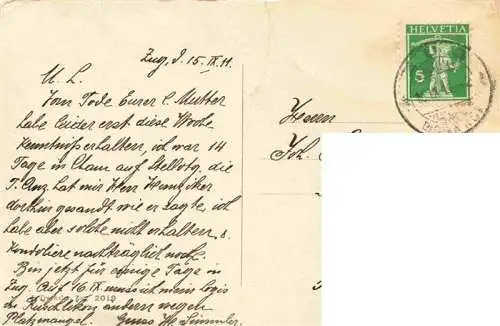 Zug, d. 15. IX. 11.
U. L.
Vom Tode Eurer l. Mutter
habe leider erst diese Woche
Kenntniß erhalten, ich war 14
Tage in Cham auf Stellvtg. die
T. Anz. hat mir Herr Hunziker
dorthin gesandt wie er sagte, ich
habe aber solche nicht erhalten, u.
kondoliere nachträglich noch.
Bin jetzt für einige Tage in
Zug. Auf 16. IX. muss ich mein logis
in Rüschlikon ändern wegen
Platzmangel. Gruss Hr. Simmler.
2019
HELVETIA
5
Herrn
Joh.